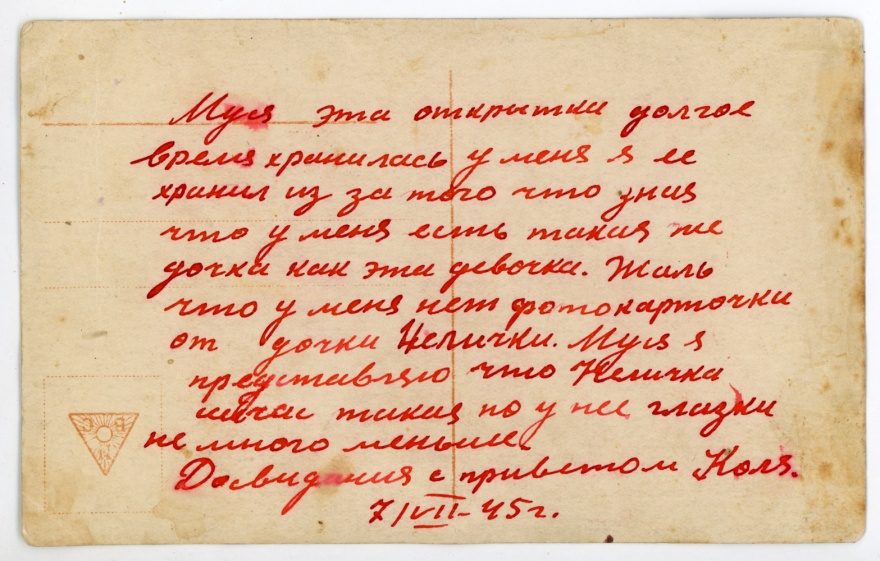 Муся эта открытка долгое
время хранилась у меня я ее
хранил из за того что зная
что у меня есть такая же
дочка как эта девочка. Жаль
что у меня нет фотокарточки
от дочки Нелички. Муся я
представляю что Неличка
сичас такая но у нее глазки
не много меньше.
Досвидания с приветом Коля.
7/VII-45г.